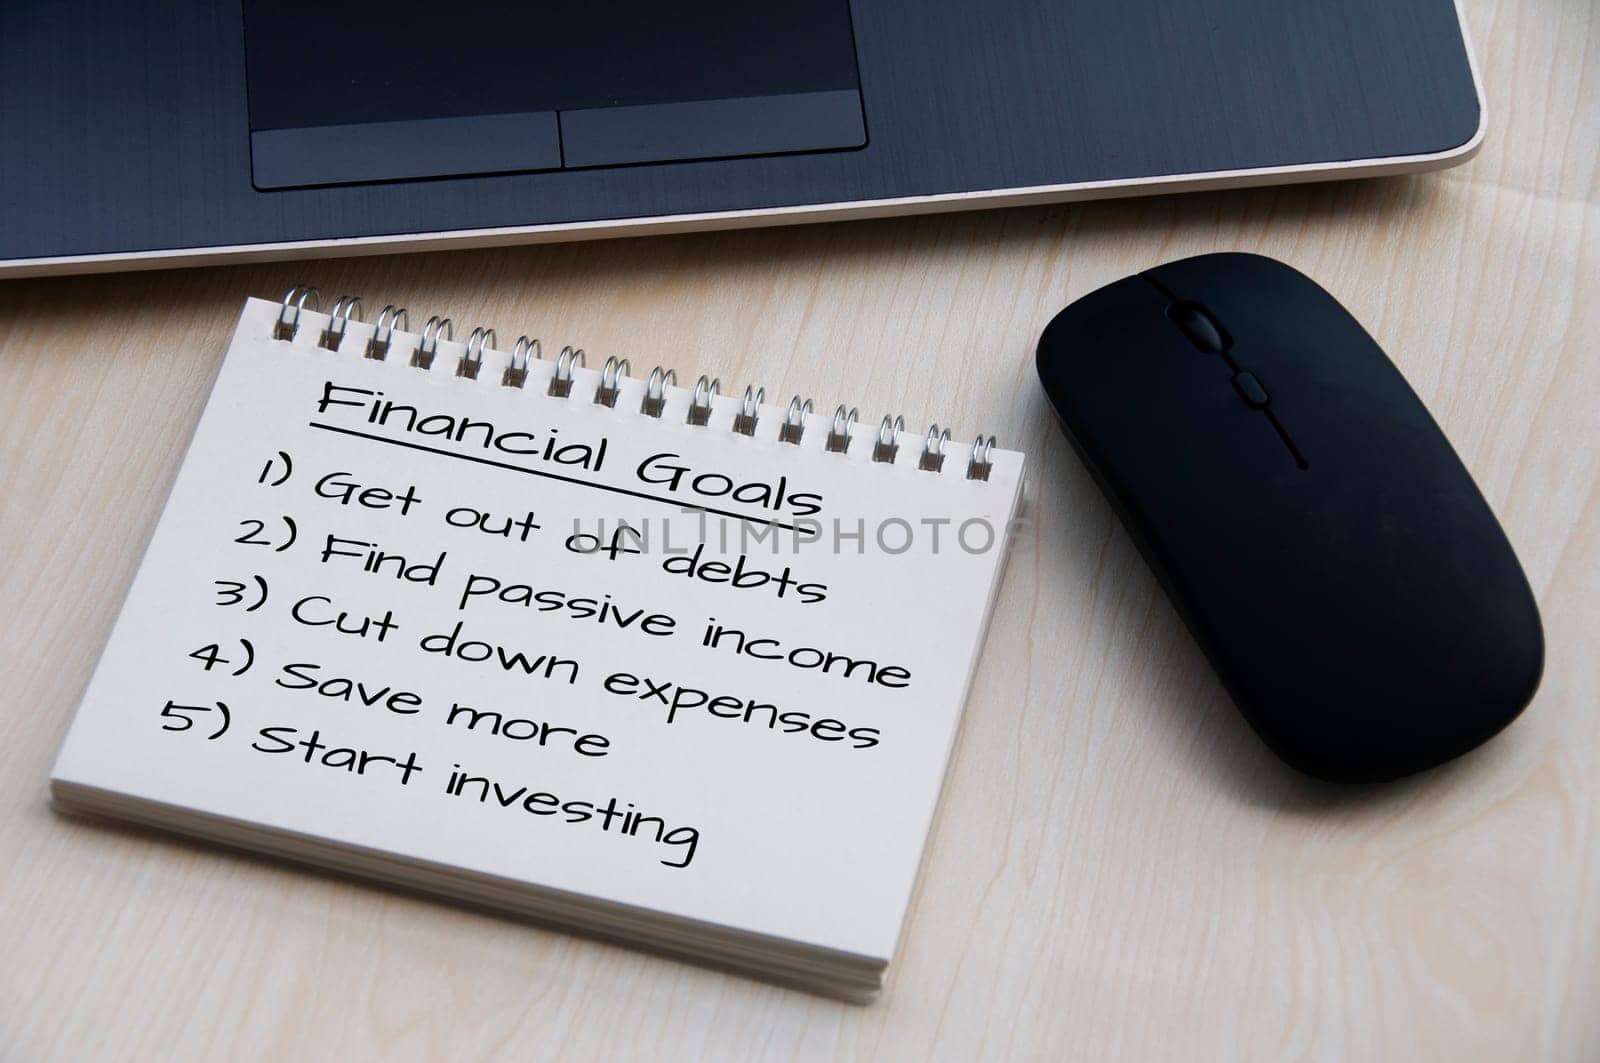 Financial Goals
1) Get out of debts
2) Find passive income
3) Cut down expenses
4) Save more
5) Start investing
UNLIMPHOTOS